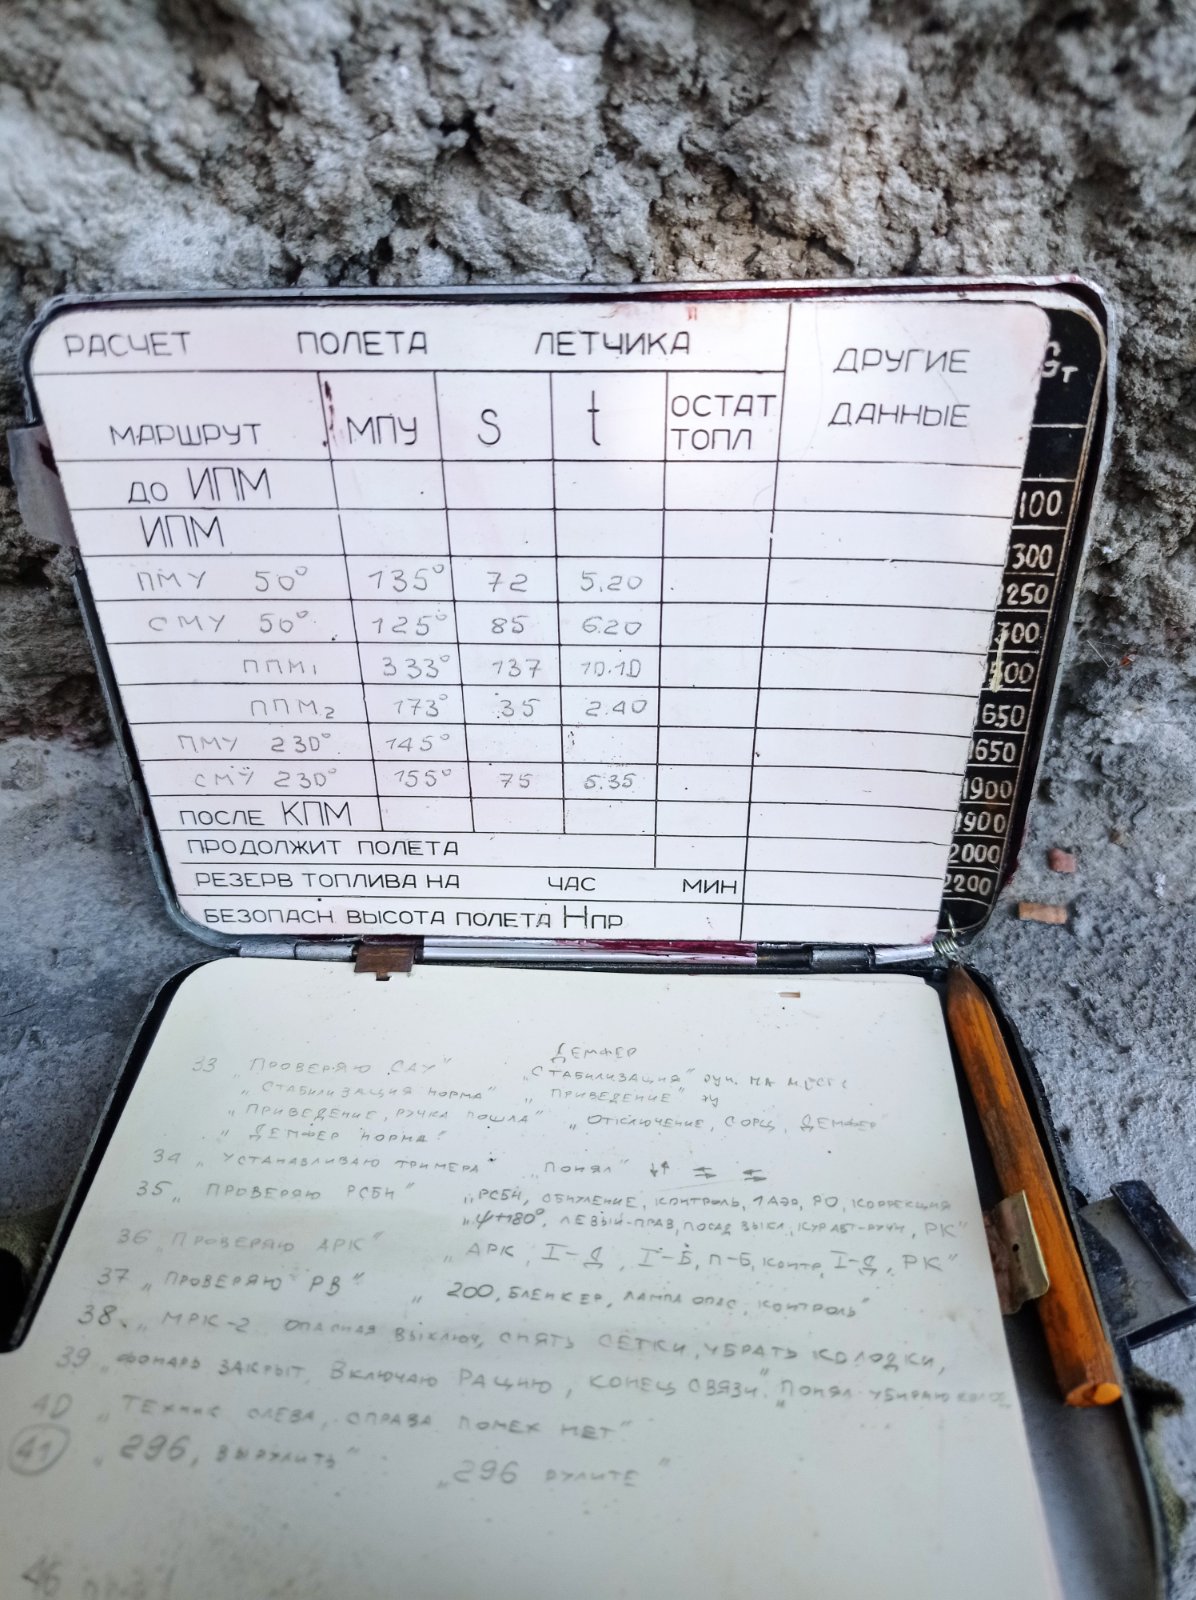 РАСЧЕТ ПОЛЕТА ЛЕТЧИКА
ДРУГИЕ ДАННЫЕ
Gт
МАРШРУТ МПУ S t ОСТАТ ТОПЛ
ДО ИПМ
100
ИПМ
300
ПМУ 50° 135° 72 5.20
250
СМУ 50° 125° 85 6.20
300
ППМ1 333° 137 10.10
500
ППМ2 173° 35 2.40
650
ПМУ 230° 145°
1650
СМУ 230° 155° 75 5.35
1900
ПОСЛЕ КПМ
1900
ПРОДОЛЖИТ ПОЛЕТА
2000
РЕЗЕРВ ТОПЛИВА НА ЧАС МИН
2200
БЕЗОПАСН ВЫСОТА ПОЛЕТА Нпр
ДЕМФЕР
33 „ПРОВЕРЯЮ САУ" „СТАБИЛИЗАЦИЯ"
„СТАБИЛИЗАЦИЯ НОРМА" „ПРИВЕДЕНИЕ"
„ПРИВЕДЕНИЕ, РУЧКА ПОШЛА" „ОТКЛЮЧЕНИЕ, СОРЦ, ДЕМФЕР
„ДЕМФЕР НОРМА"
34 „УСТАНАВЛИВАЮ ТРИМЕРА" „ПОНЯЛ"
35 „ПРОВЕРЯЮ РСБН" „РСБН, ОБНУЛЕНИЕ, КОНТРОЛЬ, 1 АЭР, РО, КОРРЕКЦИЯ
ЛЕВЫЙ-ПРАВ, ПОСАД ВЫКЛ, РК"
36 „ПРОВЕРЯЮ АРК" „АРК, I-Д, I-Б, П-Б, КОНТР, I-Д, РК"
37 „ПРОВЕРЯЮ РВ" „200, БЛЕНКЕР, ЛАМПА ОПАС, КОНТРОЛЬ"
38. „МРК-2 ОПАСНАЯ ВЫКЛЮЧ, СНЯТЬ СЕТКИ, УБРАТЬ КОЛОДКИ,
39 „ФОНАРЬ ЗАКРЫТ, ВКЛЮЧАЮ РАЦИЮ, КОНЕЦ СВЯЗИ" „ПОНЯЛ УБИРАЮ
40 „ТЕХНИК СЛЕВА, СПРАВА ПОМЕХ НЕТ"
41 „296, ВЫРУЛИТЬ" „296 РУЛИТЕ"
46